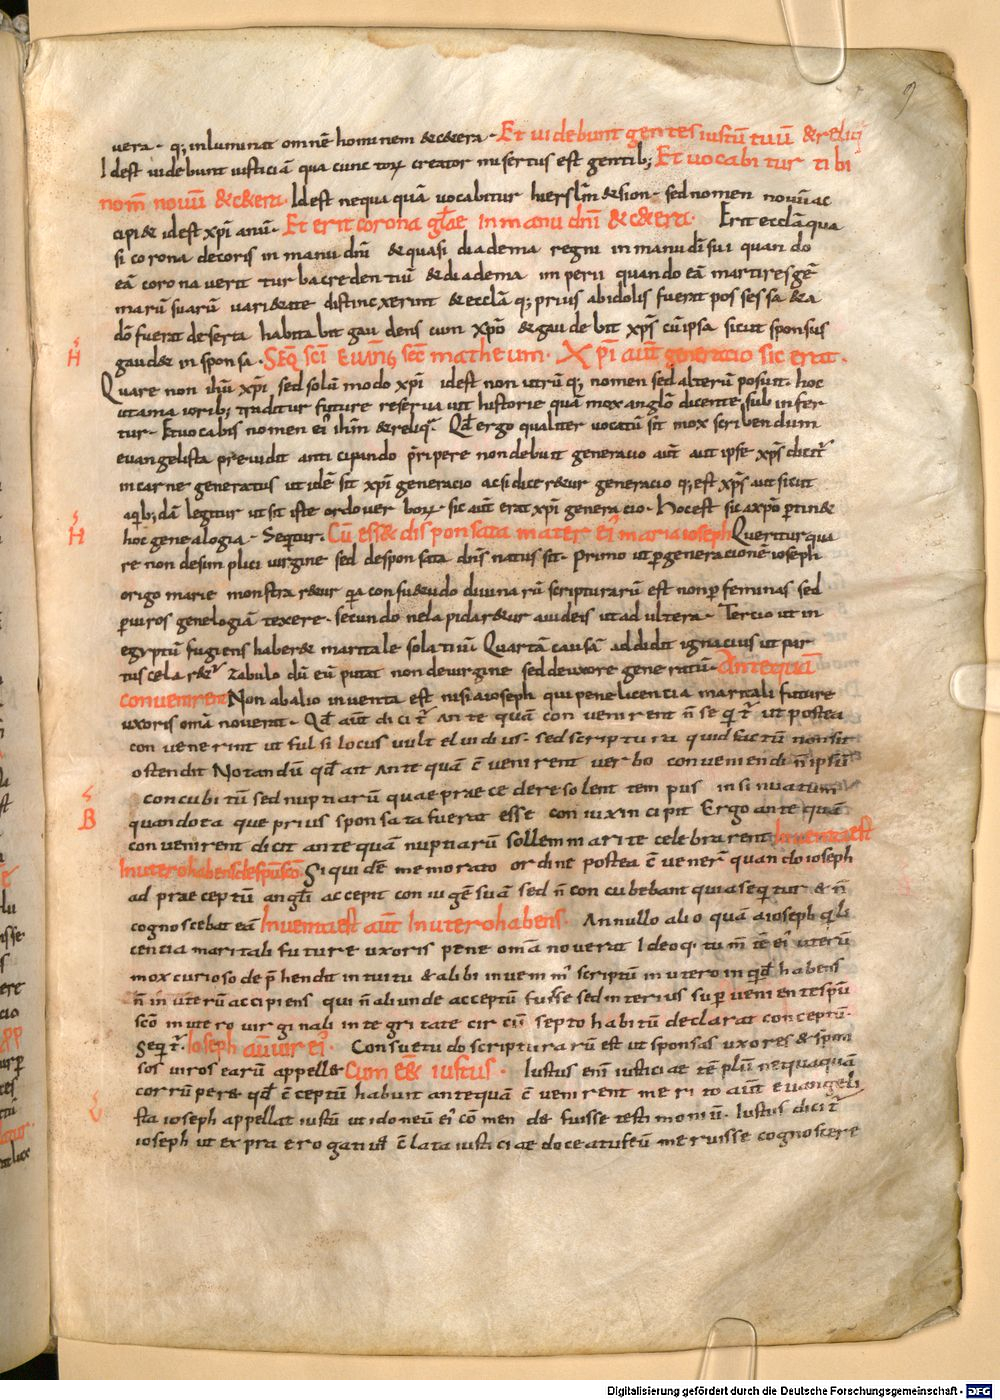 9
vera · q; inluminat omnē hominem &c&era · Et videbunt gentes iustū tuū & reliq
Idest videbunt iusticiā qua cunctoꝝ creator misertus est gentib; Et vocabitur tibi
nom̄ novū &c&era. Idest nequaquā vocabitur hierslm̄ & sion · sed nomen novū ac
cipi& idest xp̄i anū · Et erit corona gl̄ae In manu dn̄i &c&era. Erit eccl̄a qua
si corona decoris in manu dn̄i & quasi diadema regni in manu dī sui quando
eā coronaverit turba credentiū & diadema imperii quando eā martires gē
marū suarū vari&ate distinxerint & eccl̄a q; prius ab idolis fuerat possessa & a
dō fuerat deserta habitabit gaudens cum xp̄o & gaudebit xp̄s cū ipsa sicut sponsus
gaud& in sponsa · Seq̄ sc̄i Evāng sec̄ matheum. Xp̄i aut̄ generacio sic erat.
H
Quare non ih̄ū xp̄i sed solū modo xp̄i idest non utrū q; nomen sed alterū posuit. hoc
ut a maioribus traditur future reservavit historie quā mox anglō dicente sub infer
tur. Et vocabis nomen ei ih̄m & reliq̄. Qd̄ ergo qualiter vocatū sit mox scribendum
evangelista previdit anticipando p̄ripere non debuit generacio aut̄ aut ipse xp̄s dicit̄
in carne generatus ut idē sit xp̄i generacio acsi dicer&ur generacio q; est xp̄s aut sicut
a quib;dā legitur ut sit iste ordo verboꝝ · sic aut̄ erat xp̄i generacio · Hoc est sic a xp̄o ꝑtin&
H
hoc genealogia · Sequitur. Cū ess& disponsata mater ei maria ioseph Queritur qua
re non de simplici virgine sed desponsata dn̄s natus sit · primo ut ꝑ generacionē ioseph
origo marie monstrar&ur quia consu&udo divinarū scripturarū est non ꝑ feminas sed
ꝑ viros genelogiā texere · secundo ne lapidar&ur a iudeis ut adultera · Tercio ut in
egyptū fugiens haber& maritale solatiū Quartā causā addidit ignacius ut par
tus celar&ur zabulo dū eū putat non de virgine sed de uxore generatū · Antequā
convenirent Non ab alio inventa est nisi a ioseph qui pene licentia maritali future
uxoris omā noverat · Qd̄ aut̄ dicit̄ antequā convenirent n̄ seqt̄ ut postea
convenerint ut fulsilocus vult eluidius · sed scriptura quid factū non sit
ostendit Notandū qd̄ ait antequā c̄venirent verbo conveniendi n̄ ipsū
concubitū sed nuptiarū quae praecedere solent tempus insinuatum
B
quando ea que prius sponsata fuerat esse coniux incipit Ergo antequā
convenirent dicit antequā nuptiarū sollemniarite celebrarent Inventa est
In utero habens de sp̄u sc̄o. Siquidē memorato ordine postea c̄vener̄ quando ioseph
ad praeceptū angl̄i accepit coniugē suā sed n̄ concubebant quia seqt̄ur & n̄
cognoscebat eā Inventa est aut̄ In utero habens. A nullo alio quā a ioseph q li
centia maritali future uxoris pene omā noverat Ideoq. tum̄tē ei uterū
mox curioso dep̄hendit intuitu & alibi invenim scriptū in utero inqd̄ habens
n̄ in uterū accipiens qui n̄ aliunde acceptū fuisse sed interius superveniente sp̄u
sc̄o in utero virginali integritate circū septo habitū declarat conceptū ·
Seqt̄. Ioseph aū vir ei. Consuetudo scripturarū est ut sponsas uxores & spon
sos viros earū appell& Cum ēe& iustus · Iustus eni iusticiae tēplū nequaquā
corrūper& qd̄ c̄ceptū habuit antequā c̄venirent merito aut̄ evangeli
sta ioseph appellat iustū ut idoneū ei cōmende fuisse testimoniū. Iustus dicit̄
ioseph ut ex praerogativa c̄lata iusticiae doceatur eū meruisse cognoscere
Digitalisierung gefördert durch die Deutsche Forschungsgemeinschaft - DFG